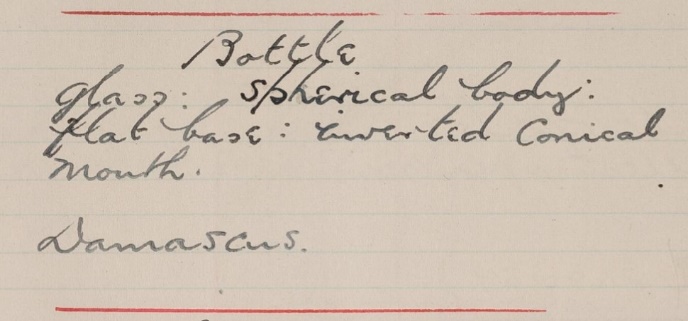 Bottle
Glass: Spherical body:
flat base: inverted Conical
mouth.
Damascus.